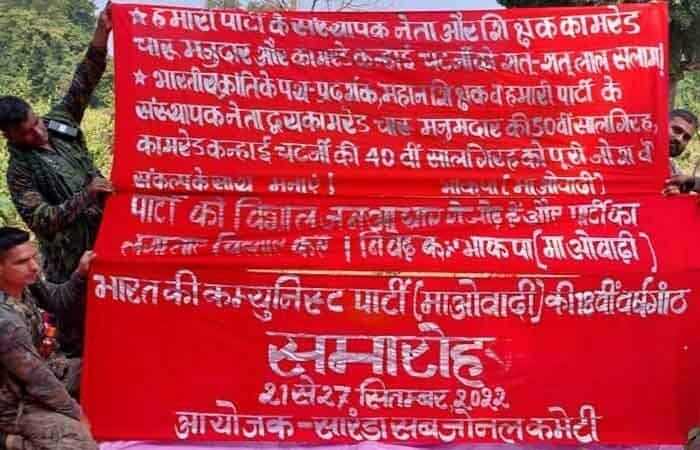 ★ हमारी पार्टी के संस्थापक नेता और शिक्षक कामरेड
चारू मजुमदार और कामरेड कन्हाई चटर्जी को शत-शत् लाल सलाम।
★ भारतीय क्रांति के पथ-प्रदर्शक, महान शिक्षक व हमारी पार्टी के
संस्थापक नेता द्वय कामरेड चारू मजुमदार की 50वीं सालगिरह,
कामरेड कन्हाई चटर्जी की 40 वीं सालगिरह को पूरी जोश व
संकल्प के साथ मनाएं। भाकपा (माओवादी)
पार्टी को विशाल और पार्टी का
करें। भाकपा (माओवादी)
भारत की कम्युनिस्ट पार्टी (माओवादी) की 18वीं वर्षगांठ
समारोह
21 से 27 सितम्बर, 2022
आयोजक - सारंडा सबजोनल कमेटी